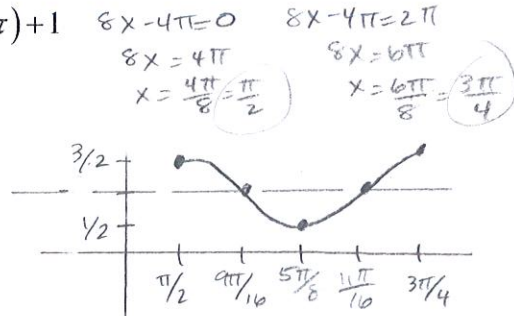 π)+1 8x-4π=0 8x-4π=2π
8x=4π 8x=6π
x=4π/8=π/2 x=6π/8=3π/4
3/2
1/2
π/2 9π/16 5π/8 11π/16 3π/4